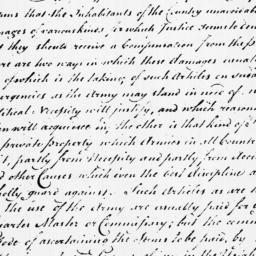 ums that the Inhabitants of the Country unavoidab
mages of various kinds, for which Justice seems to dem
they should receive a Compensation from the p
ere are two ways in which these damages usually
of which is the taking of such Articles on sudd
urgencies as the Army may stand in need of. w
litical Necessity will justify, and which reason
en will acquiesce in, the other is that kind of
private property which Armies in all Countr
t, partly from Necessity and partly from Acci
nd other Causes which even the best discipline
holly guard against. Such Articles as are
the use of the Army are usually paid for
uarter Master or Commissary; but the comm
Mode of ascertaining the Sums to be paid, by